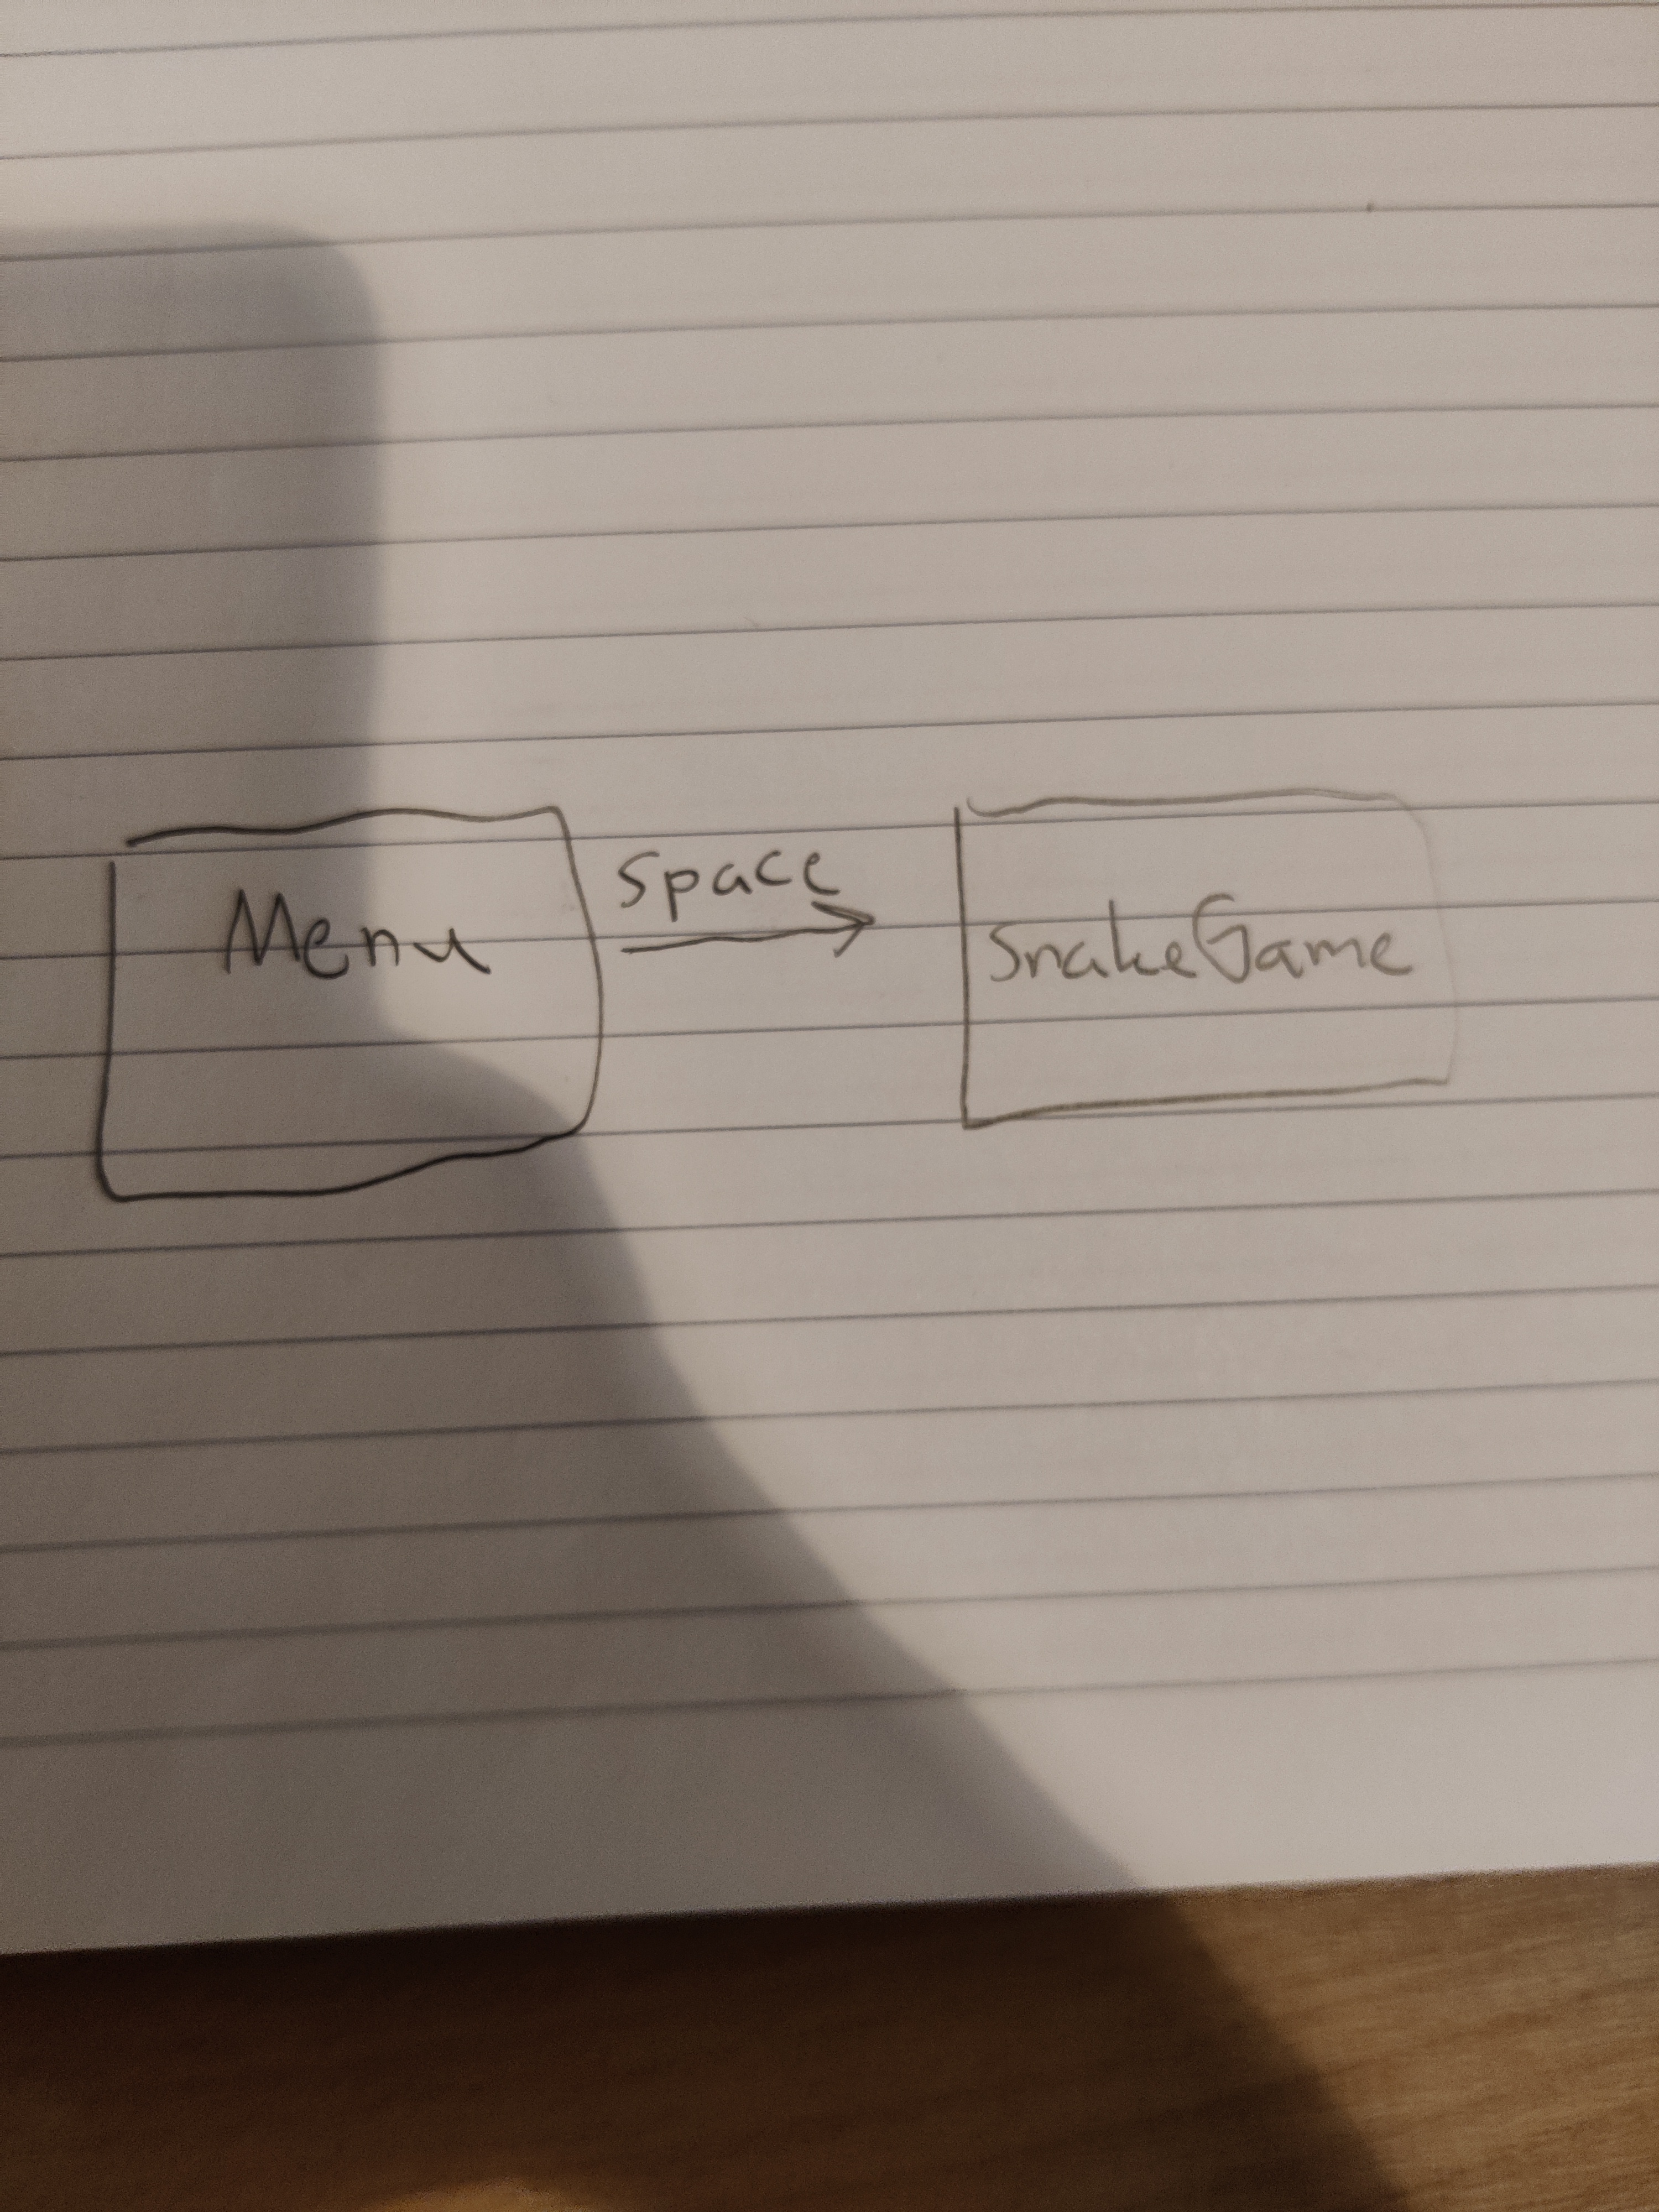 Menu
space
SnakeGame